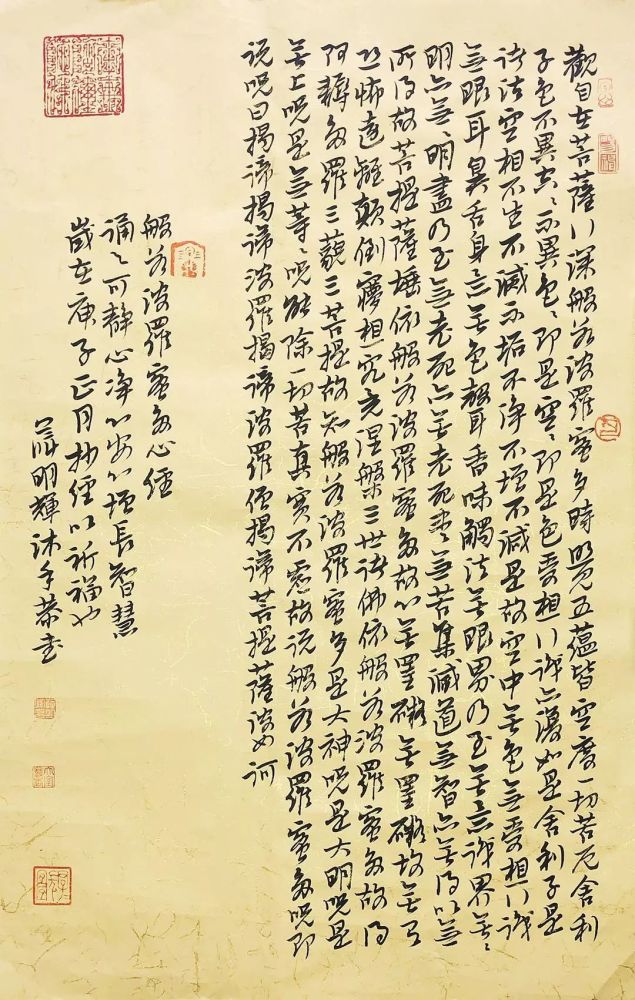 觀自在菩薩行深般若波羅蜜多時照見五蘊皆空度一切苦厄舍利
子色不異空〻不異色〻即是空〻即是色受相行識亦復如是舍利子是
諸法空相不生不滅不垢不淨不增不減是故空中無色無受相行識
無眼耳鼻舌身意無色聲香味觸法無眼界乃至無意識界無〻
明亦無〻明盡乃至無老死亦無老死盡無苦集滅道無智亦無得以無
所得故菩提薩埵依般若波羅蜜多故心無罣礙無罣礙故無有
恐怖遠離顛倒夢想究竟涅槃三世諸佛依般若波羅蜜多故得
阿耨多羅三藐三菩提故知般若波羅蜜多是大神咒是大明咒是
無上咒是無等〻咒能除一切苦真實不虛故說般若波羅蜜多咒即
說咒曰揭諦揭諦波羅揭諦波羅僧揭諦菩提薩婆訶
般若波羅蜜多心經
誦之可靜心淨心安心增長智慧
歲在庚子正月抄經以祈福也
明輝沐手恭書